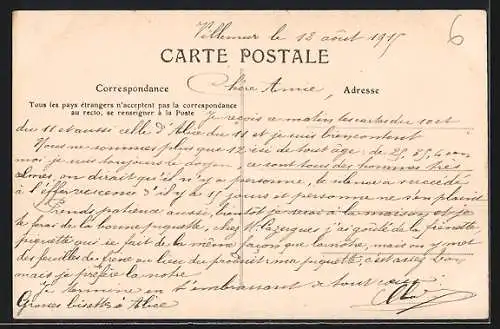 Villemur le 12 août 1915
6
CARTE POSTALE
Correspondance
Chère Anne,
Adresse
Tous les pays étrangers n'acceptent pas la correspondance
au recto, se renseigner à la Poste
Je reçois ce matin les cartes du 10 et
du 11 et aussi celle d'Alice du 11 et je suis bien content
Nous ne sommes plus que 12 ici de tout âge, de 25, 35, 4
moi je suis toujours le doyen, ce sont tous des hommes très
calmes, on dirait qu'il n'y a personne, le calme a succédé
à l'effervescence d'il y a 15 jours et personne ne s'en plaint
Prends patience aussi, bientôt je serai à la maison et je
te ferai de la bonne piquette, chez M. Cazergues j'ai goûté de la frênette,
piquette qui se fait de la même façon que la nôtre, mais on y met
des feuilles de frêne au lieu du produit ma piquette, c'est assez bon
mais je préfère la nôtre
Je termine en t'embrassant de tout cœur
Grosses bisettes à Alice